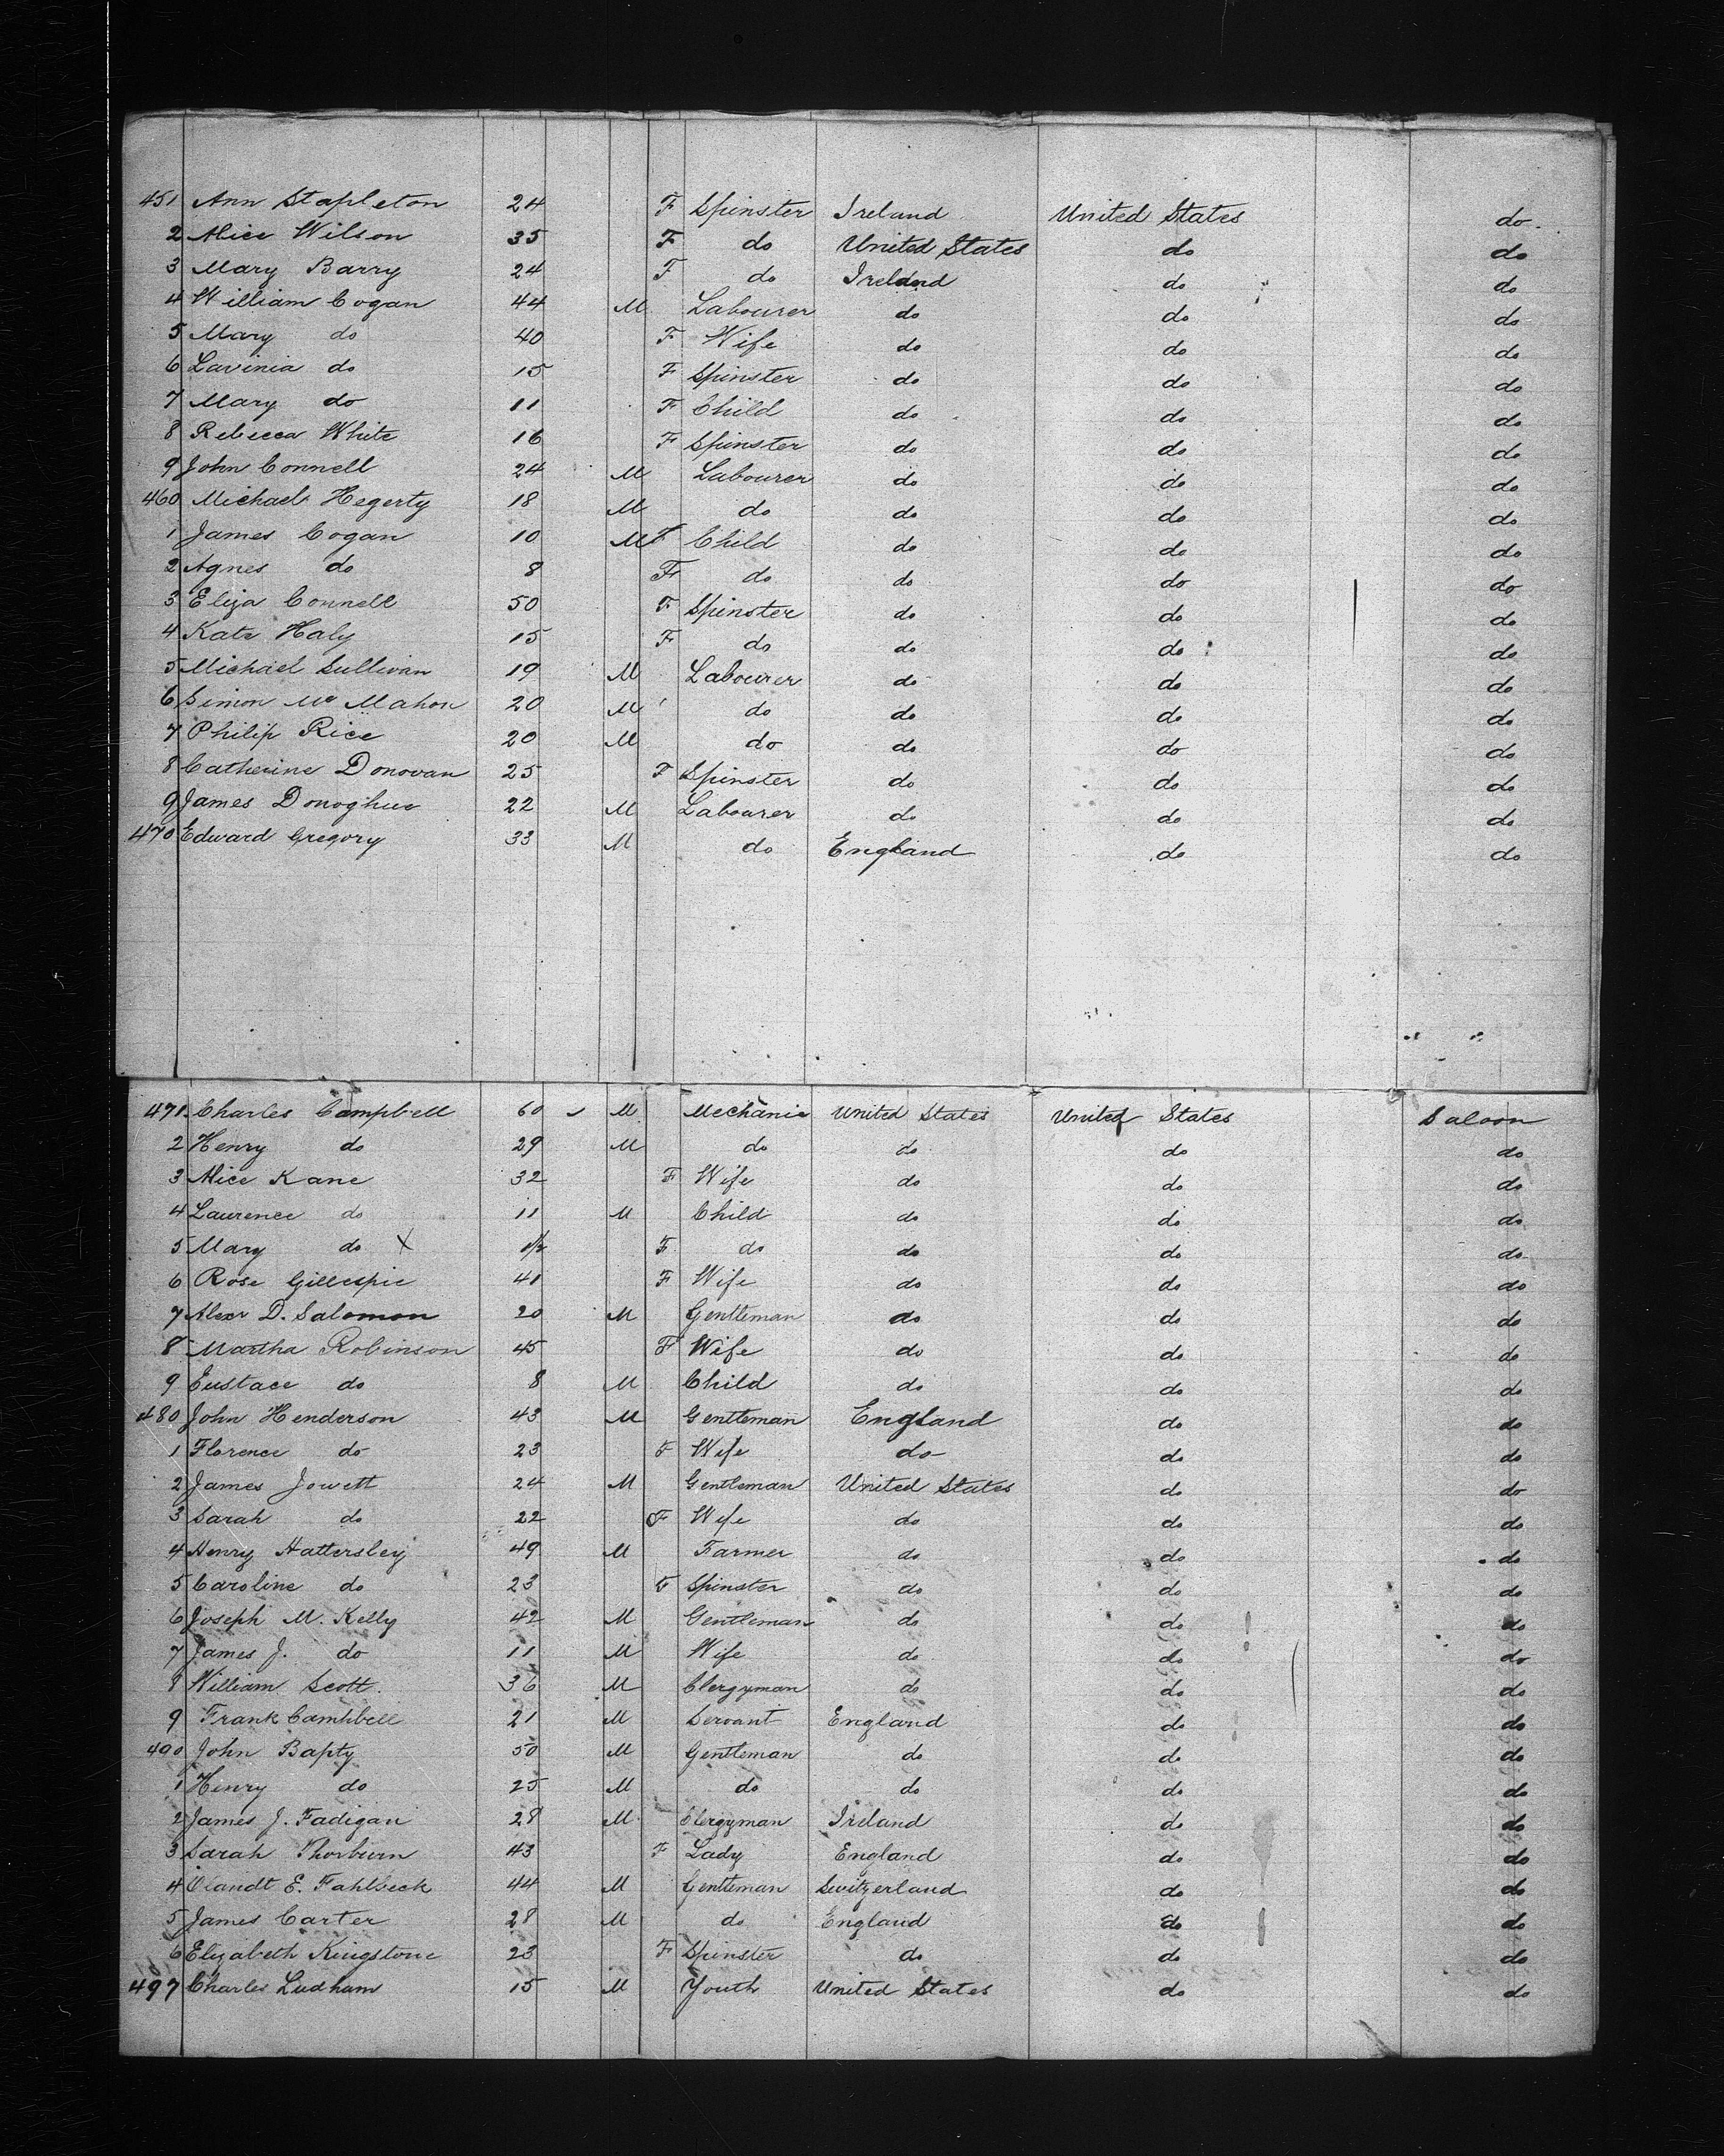 451 Ann Stapleton 24 F Spinster Ireland United States do
2 Alice Wilson 35 F do United States do do
3 Mary Barry 24 F do Ireland do do
4 William Cogan 44 M Labourer do do do
5 Mary do 40 F Wife do do do
6 Lavinia do 15 F Spinster do do do
7 Mary do 11 F Child do do do
8 Rebecca White 16 F Spinster do do do
9 John Connell 24 M Labourer do do do
460 Michael Hegerty 18 M do do do do
1 James Cogan 10 M Child do do do
2 Agnes do 8 F do do do do
3 Eliza Connell 50 F Spinster do do do
4 Kate Haly 15 F do do do do
5 Michael Sullivan 19 M Labourer do do do
6 Simon Mc Mahon 20 M do do do do
7 Philip Rice 20 M do do do do
8 Catherine Donovan 25 F Spinster do do do
9 James Donoghue 22 M Labourer do do do
470 Edward Gregory 33 M do England do do
471 Charles Campbell 60 M Mechanic United States United States Saloon
2 Henry do 29 M do do do do
3 Alice Kane 32 F Wife do do do
4 Laurence do 11 M Child do do do
5 Mary do X F do do do do
6 Rose Gillespie 41 F Wife do do do
7 Alexr D. Salomon 20 M Gentleman do do do
8 Martha Robinson 45 F Wife do do do
9 Eustace do 8 M Child do do do
480 John Henderson 43 M Gentleman England do do
1 Florence do 23 F Wife do do do
2 James Jowett 24 M Gentleman United States do do
3 Sarah do 22 F Wife do do do
4 Henry Hattersley 49 M Farmer do do do
5 Caroline do 23 F Spinster do do do
6 Joseph M. Kelly 42 M Gentleman do do do
7 James J. do 11 M Wife do do do
8 William Scott 36 M Clergyman do do do
9 Frank Campbell 21 M Servant England do do
490 John Bapty 50 M Gentleman do do do
1 Henry do 25 M do do do do
2 James J. Fadigan 28 M Clergyman Ireland do do
3 Sarah Thorburn 43 F Lady England do do
4 Olandt E. Fahlbeck 44 M Gentleman Switzerland do do
5 James Carter 28 M do England do do
6 Elizabeth Kingstone 23 F Spinster do do do
497 Charles Ludham 15 M Youth United States do do